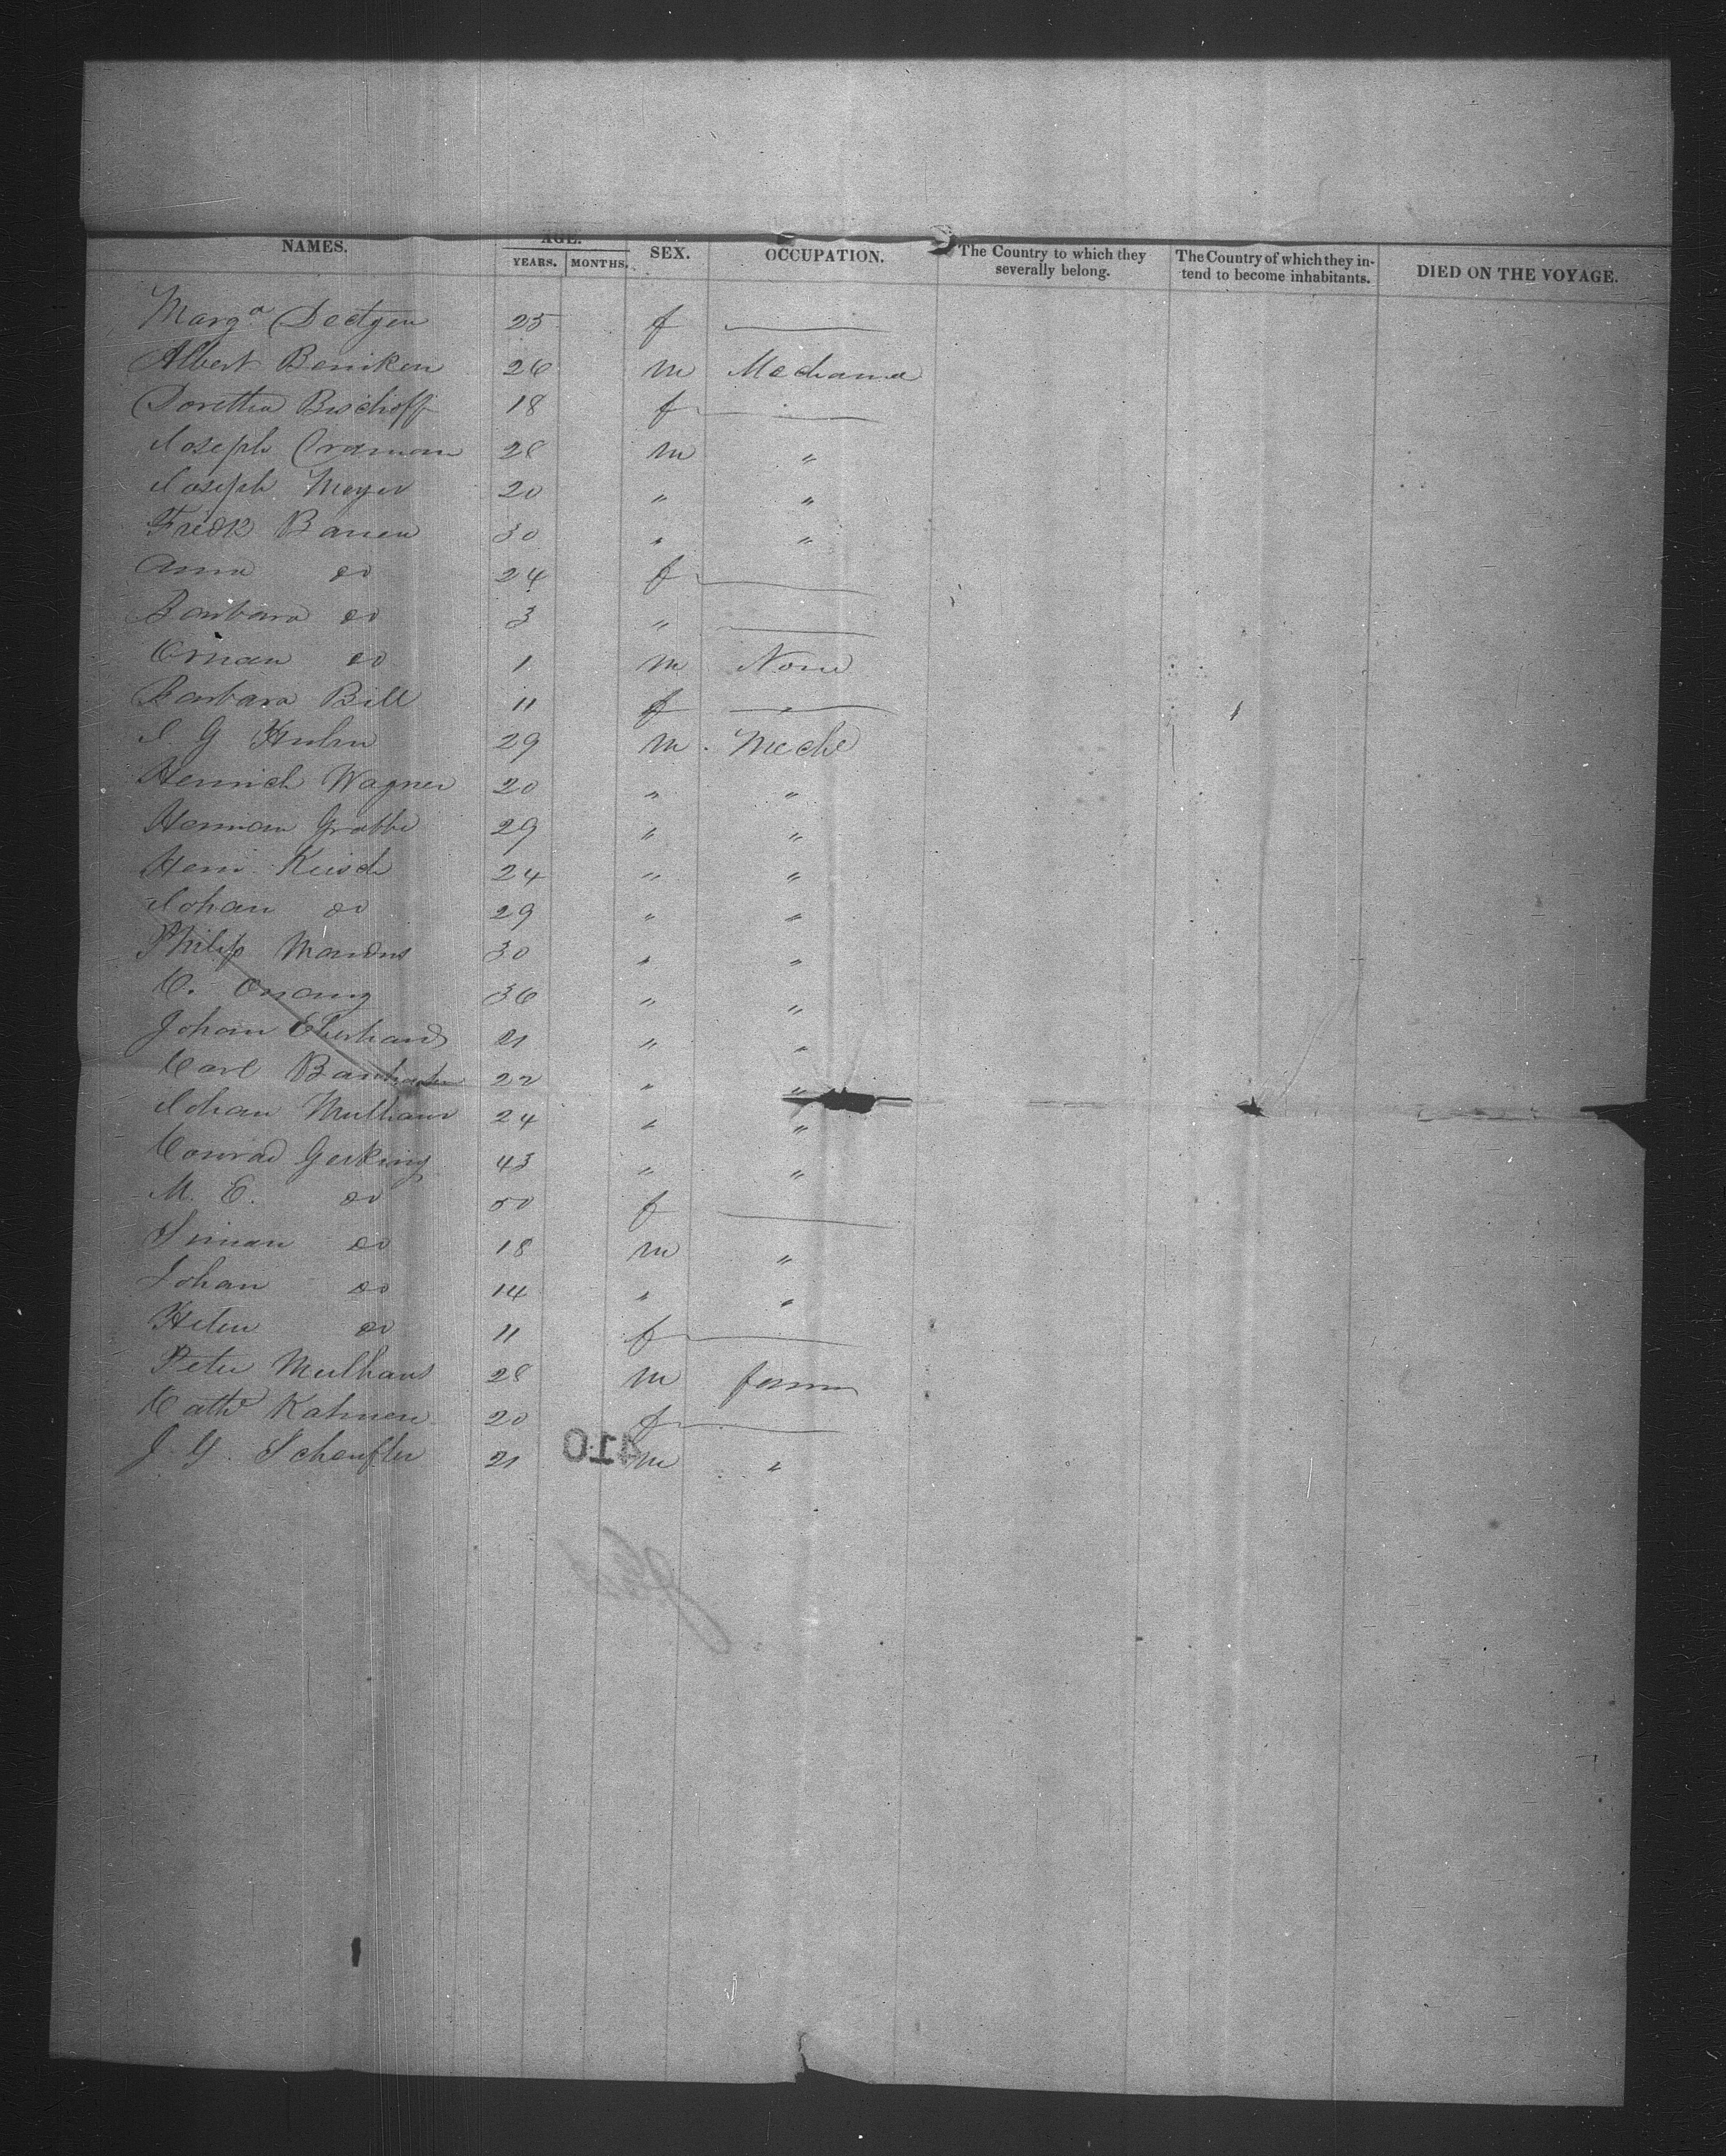 NAMES. AGE. SEX. OCCUPATION. The Country to which they severally belong. The Country of which they intend to become inhabitants. DIED ON THE VOYAGE.
YEARS. MONTHS.
Marga Dectgen 25 f
Albert Beniken 26 m Mechanic
Dorethea Bischoff 18 f
Joseph Craman 28 m "
Joseph Meyer 20 " "
Fredk Bauen 30 " "
Anna do 24 f
Barbara do 3 "
do 1 m None
Barbara Bill 11 f
J G Huhn 29 m Mech
Henrich Wagner 20 " "
Herman Grabbe 29 " "
Henr. Keisch 24 " "
Johan do 29 " "
Philip Mandus 30 " "
C. 36 " "
Johan Eberhard 21 " "
Carl 22 " "
Johan Mulhaus 24 " "
Conrad Gerking 43 " "
M. E. do 50 f
Siman do 18 m "
Johan do 14 " "
Helen do 11 f
Peter Mulhaus 28 m farmer
Cath Kahmen 20 f
J. G. Scheufler 21 m "
410